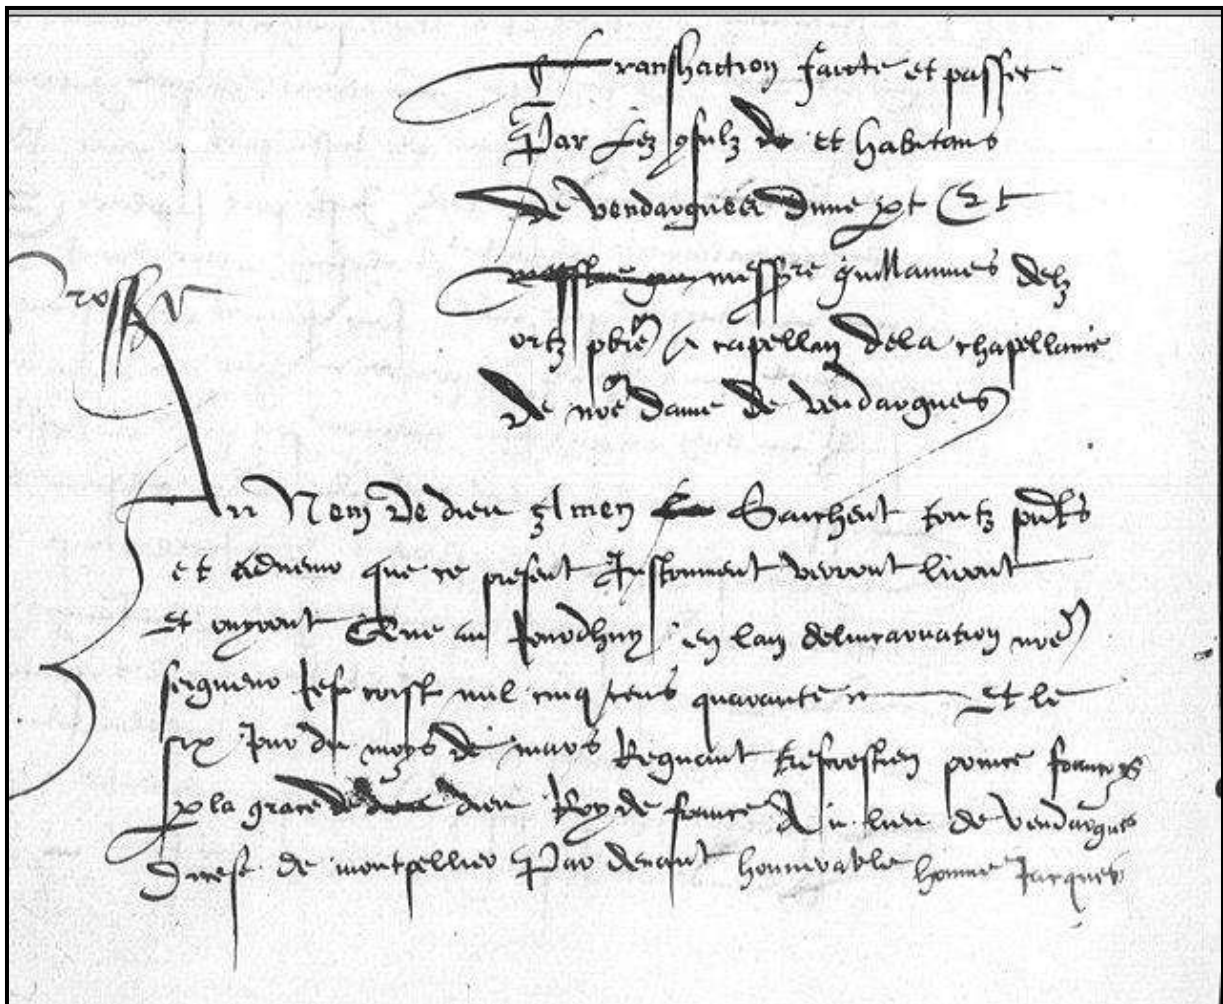 Transhaction faicte et passee
Par Lez gsulz de et habitans
De vendargues dune pt Et
messire guillaumes delz
ortz pbre et capellan dela chapellanie
De nre dame de vendargues
Grosse
Au Nom De dieu Amen Saichent toutz pnts
et advenir que ce present Instrument verront liront
Et ouyront Que au Jourdhuy en lan delincarnation nre
seigneur Jesu crist mil cinq cens quarante Et le
six Jour du moys de mars Regnant trescrestien prince francoys
p la grace de dieu Roy de france Au lieu de vendargues
Dicese de montpellier Par devant honnorable homme Jacques